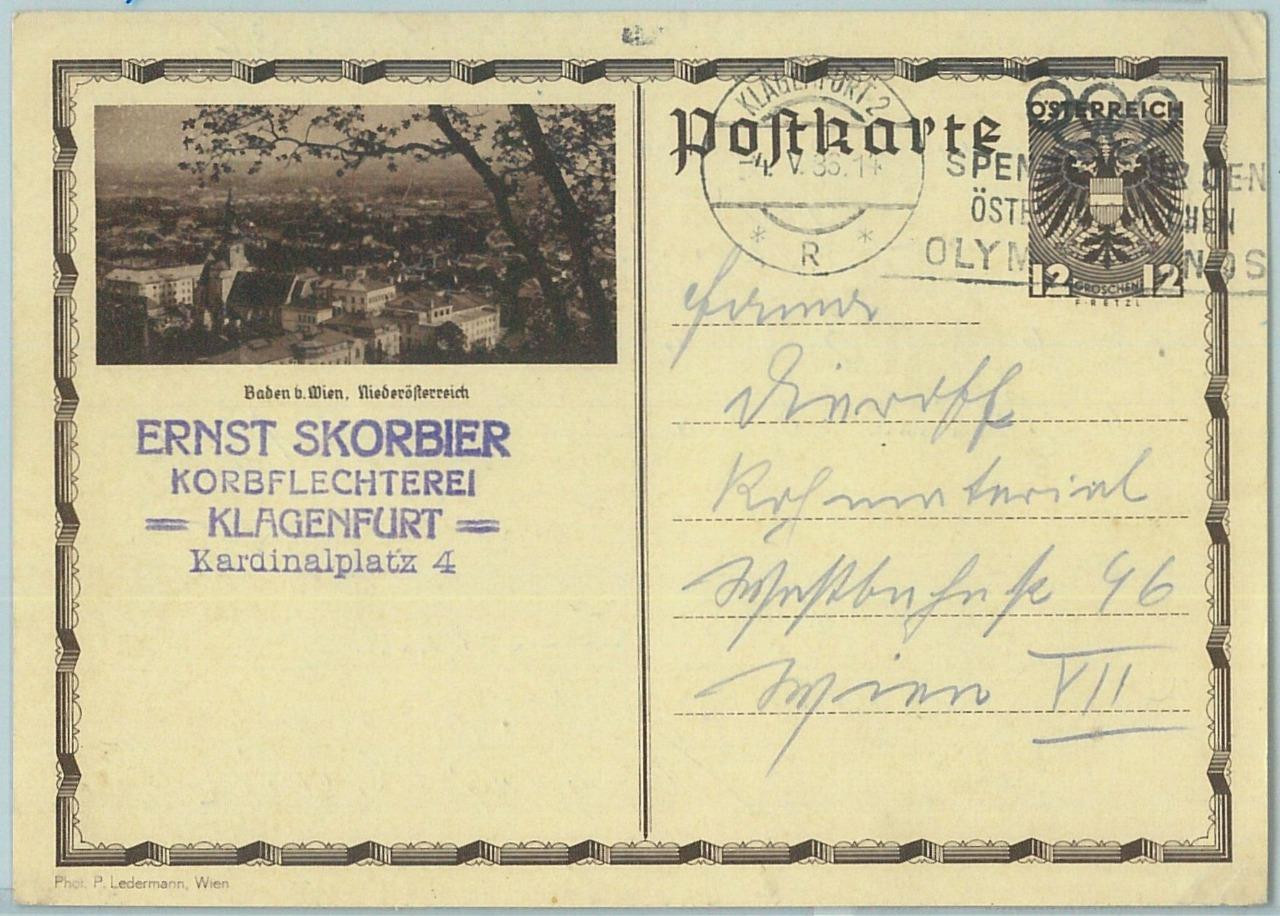 Baden b. Wien, Niederösterreich
ERNST SKORBIER
KORBFLECHTEREI
KLAGENFURT
Kardinalplatz 4
Postkarte
KLAGENFURT 2
4. V. 36. 14
* R *
SPEN R DEN
ÖSTE HEN
OLYM NDS
ÖSTERREICH
12 GROSCHEN 12
F·RETZL
Firma
Dieroff
Rohmaterial
Westbahnstr 46
Wien VII
Phot. P. Ledermann, Wien